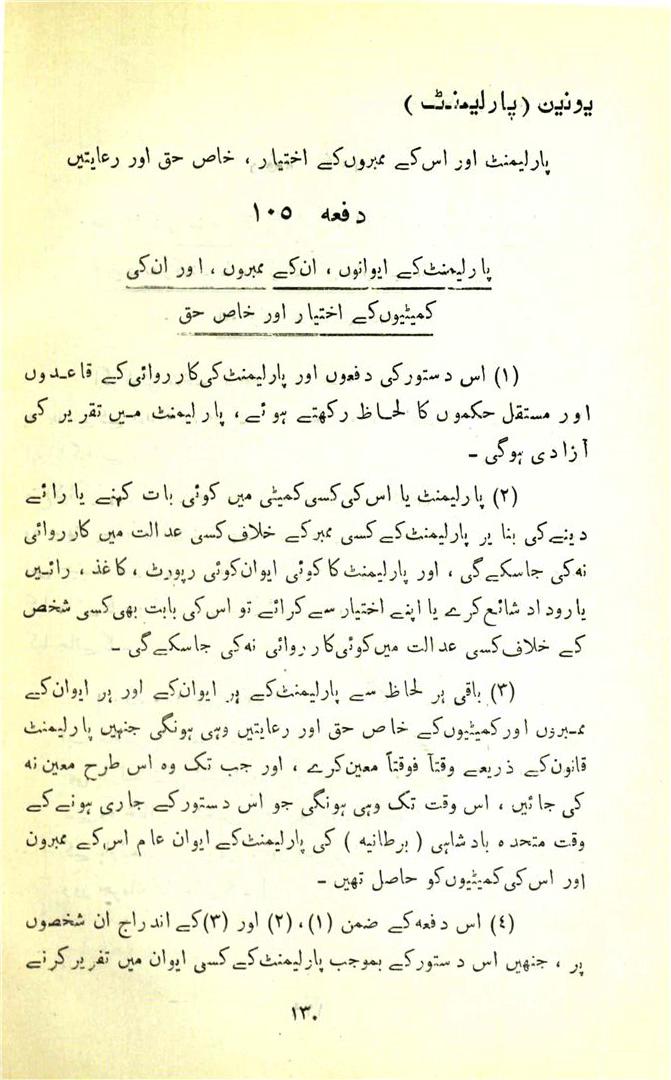 یونین (پارلیمنٹ)
پارلیمنٹ اور اس کے ممبروں کے اختیار، خاص حق اور رعایتیں
دفعہ ۱۰۵
پارلیمنٹ کے ایوانوں، ان کے ممبروں، اور ان کی
کمیٹیوں کے اختیار اور خاص حق
(۱) اس دستور کی دفعوں اور پارلیمنٹ کی کارروائی کے قاعدوں
اور مستقل حکموں کا لحاظ رکھتے ہوئے، پارلیمنٹ میں تقریر کی
آزادی ہوگی ۔
(۲) پارلیمنٹ یا اس کی کسی کمیٹی میں کوئی بات کہنے یا رائے
دینے کی بنا پر پارلیمنٹ کے کسی ممبر کے خلاف کسی عدالت میں کارروائی
نہ کی جاسکے گی، اور پارلیمنٹ کا کوئی ایوان کوئی رپورٹ، کاغذ، رائیں
یا روداد شائع کرے یا اپنے اختیار سے کرائے تو اس کی بابت بھی کسی شخص
کے خلاف کسی عدالت میں کوئی کارروائی نہ کی جاسکے گی ۔
(۳) باقی ہر لحاظ سے پارلیمنٹ کے ہر ایوان کے اور ہر ایوان کے
ممبروں اور کمیٹیوں کے خاص حق اور رعایتیں وہی ہونگی جنہیں پارلیمنٹ
قانون کے ذریعے وقتاً فوقتاً معین کرے، اور جب تک وہ اس طرح معین نہ
کی جائیں، اس وقت تک وہی ہونگی جو اس دستور کے جاری ہونے کے
وقت متحدہ بادشاہی (برطانیہ) کی پارلیمنٹ کے ایوان عام اس کے ممبرون
اور اس کی کمیٹیوں کو حاصل تھیں ۔
(٤) اس دفعہ کے ضمن (۱)، (۲) اور (۳) کے اندراج ان شخصوں
پر، جنھیں اس دستور کے بموجب پارلیمنٹ کے کسی ایوان میں تقریر کرنے
۱۳۰